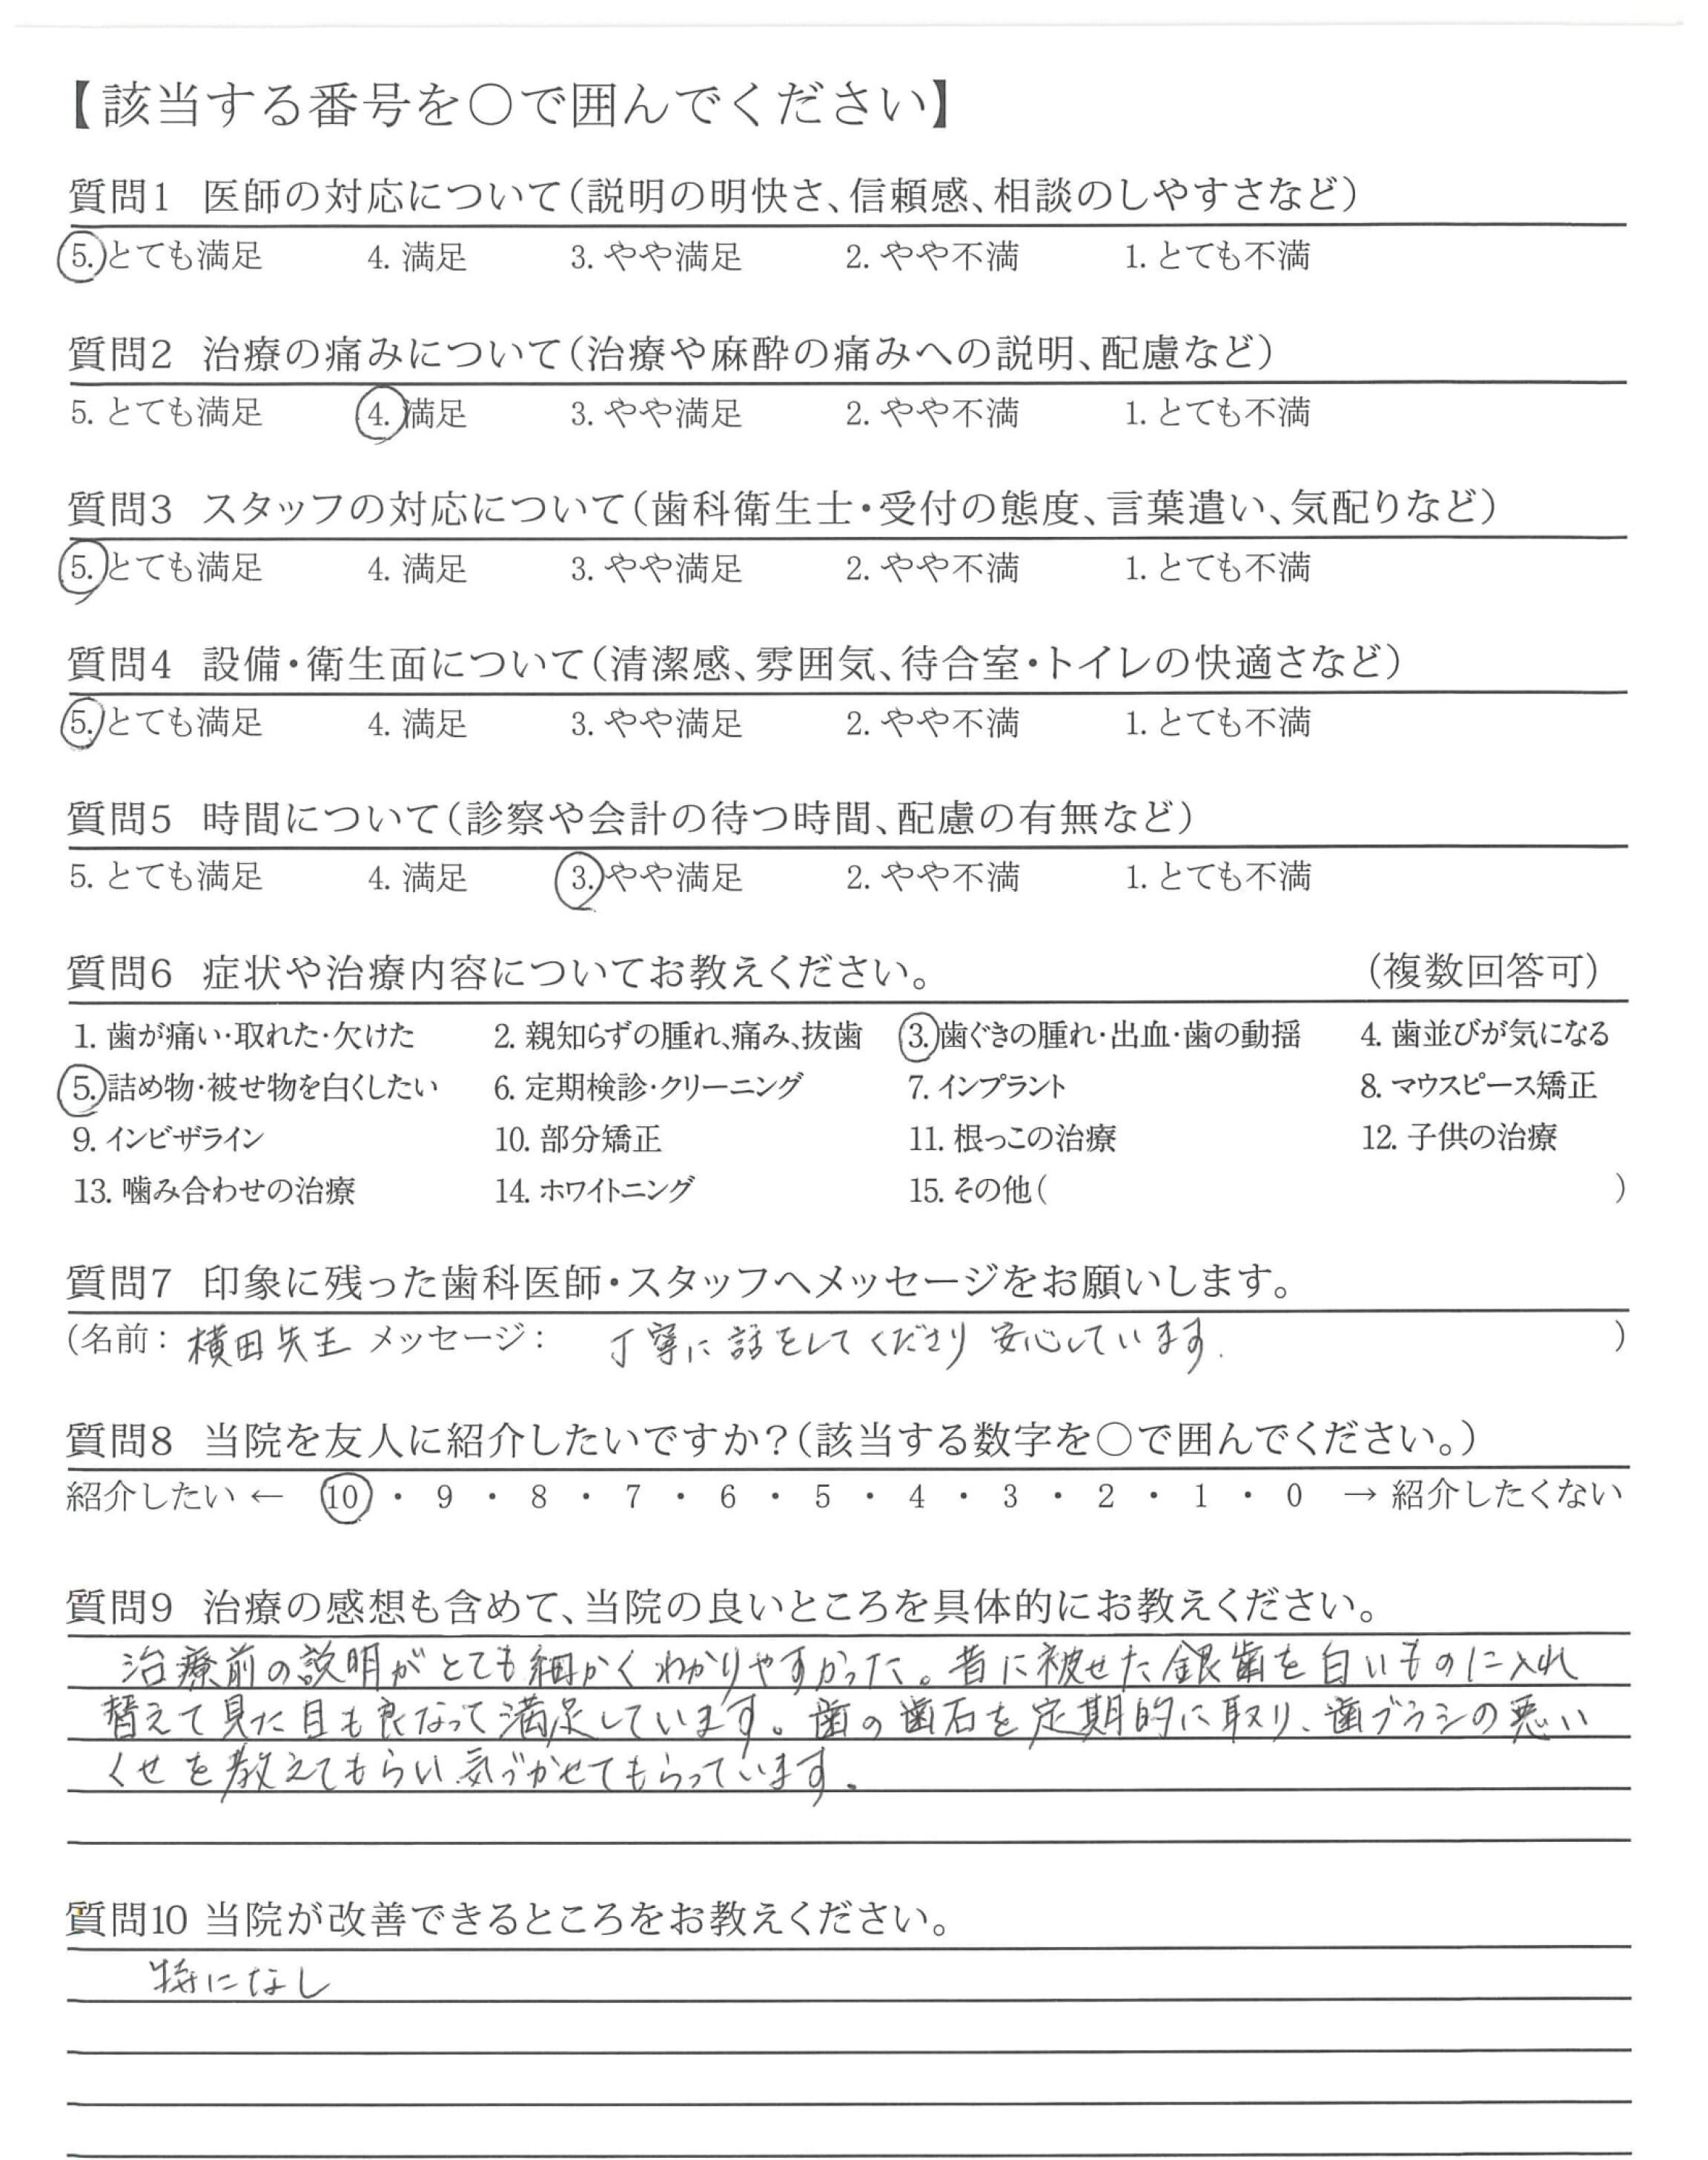 【該当する番号を○で囲んでください】
質問1 医師の対応について(説明の明快さ、信頼感、相談のしやすさなど)
5. とても満足 4. 満足 3. やや満足 2. やや不満 1. とても不満
質問2 治療の痛みについて(治療や麻酔の痛みへの説明、配慮など)
5. とても満足 4. 満足 3. やや満足 2. やや不満 1. とても不満
質問3 スタッフの対応について(歯科衛生士・受付の態度、言葉遣い、気配りなど)
5. とても満足 4. 満足 3. やや満足 2. やや不満 1. とても不満
質問4 設備・衛生面について(清潔感、雰囲気、待合室・トイレの快適さなど)
5. とても満足 4. 満足 3. やや満足 2. やや不満 1. とても不満
質問5 時間について(診察や会計の待つ時間、配慮の有無など)
5. とても満足 4. 満足 3. やや満足 2. やや不満 1. とても不満
質問6 症状や治療内容についてお教えください。 (複数回答可)
1. 歯が痛い・取れた・欠けた 2. 親知らずの腫れ、痛み、抜歯 3. 歯ぐきの腫れ・出血・歯の動揺 4. 歯並びが気になる
5. 詰め物・被せ物を白くしたい 6. 定期検診・クリーニング 7. インプラント 8. マウスピース矯正
9. インビザライン 10. 部分矯正 11. 根っこの治療 12. 子供の治療
13. 噛み合わせの治療 14. ホワイトニング 15. その他( )
質問7 印象に残った歯科医師・スタッフへメッセージをお願いします。
(名前: 横田先生 メッセージ: 丁寧に話をしてくださり安心しています. )
質問8 当院を友人に紹介したいですか?(該当する数字を○で囲んでください。)
紹介したい ← 10 ・ 9 ・ 8 ・ 7 ・ 6 ・ 5 ・ 4 ・ 3 ・ 2 ・ 1 ・ 0 → 紹介したくない
質問9 治療の感想も含めて、当院の良いところを具体的にお教えください。
治療前の説明がとても細かくわかりやすかった。昔に被せた銀歯を白いものに入れ
替えて見た目も良なって満足しています。歯の歯石を定期的に取り、歯ブラシの悪い
くせを教えてもらい気づかせてもらっています。
質問10 当院が改善できるところをお教えください。
特になし